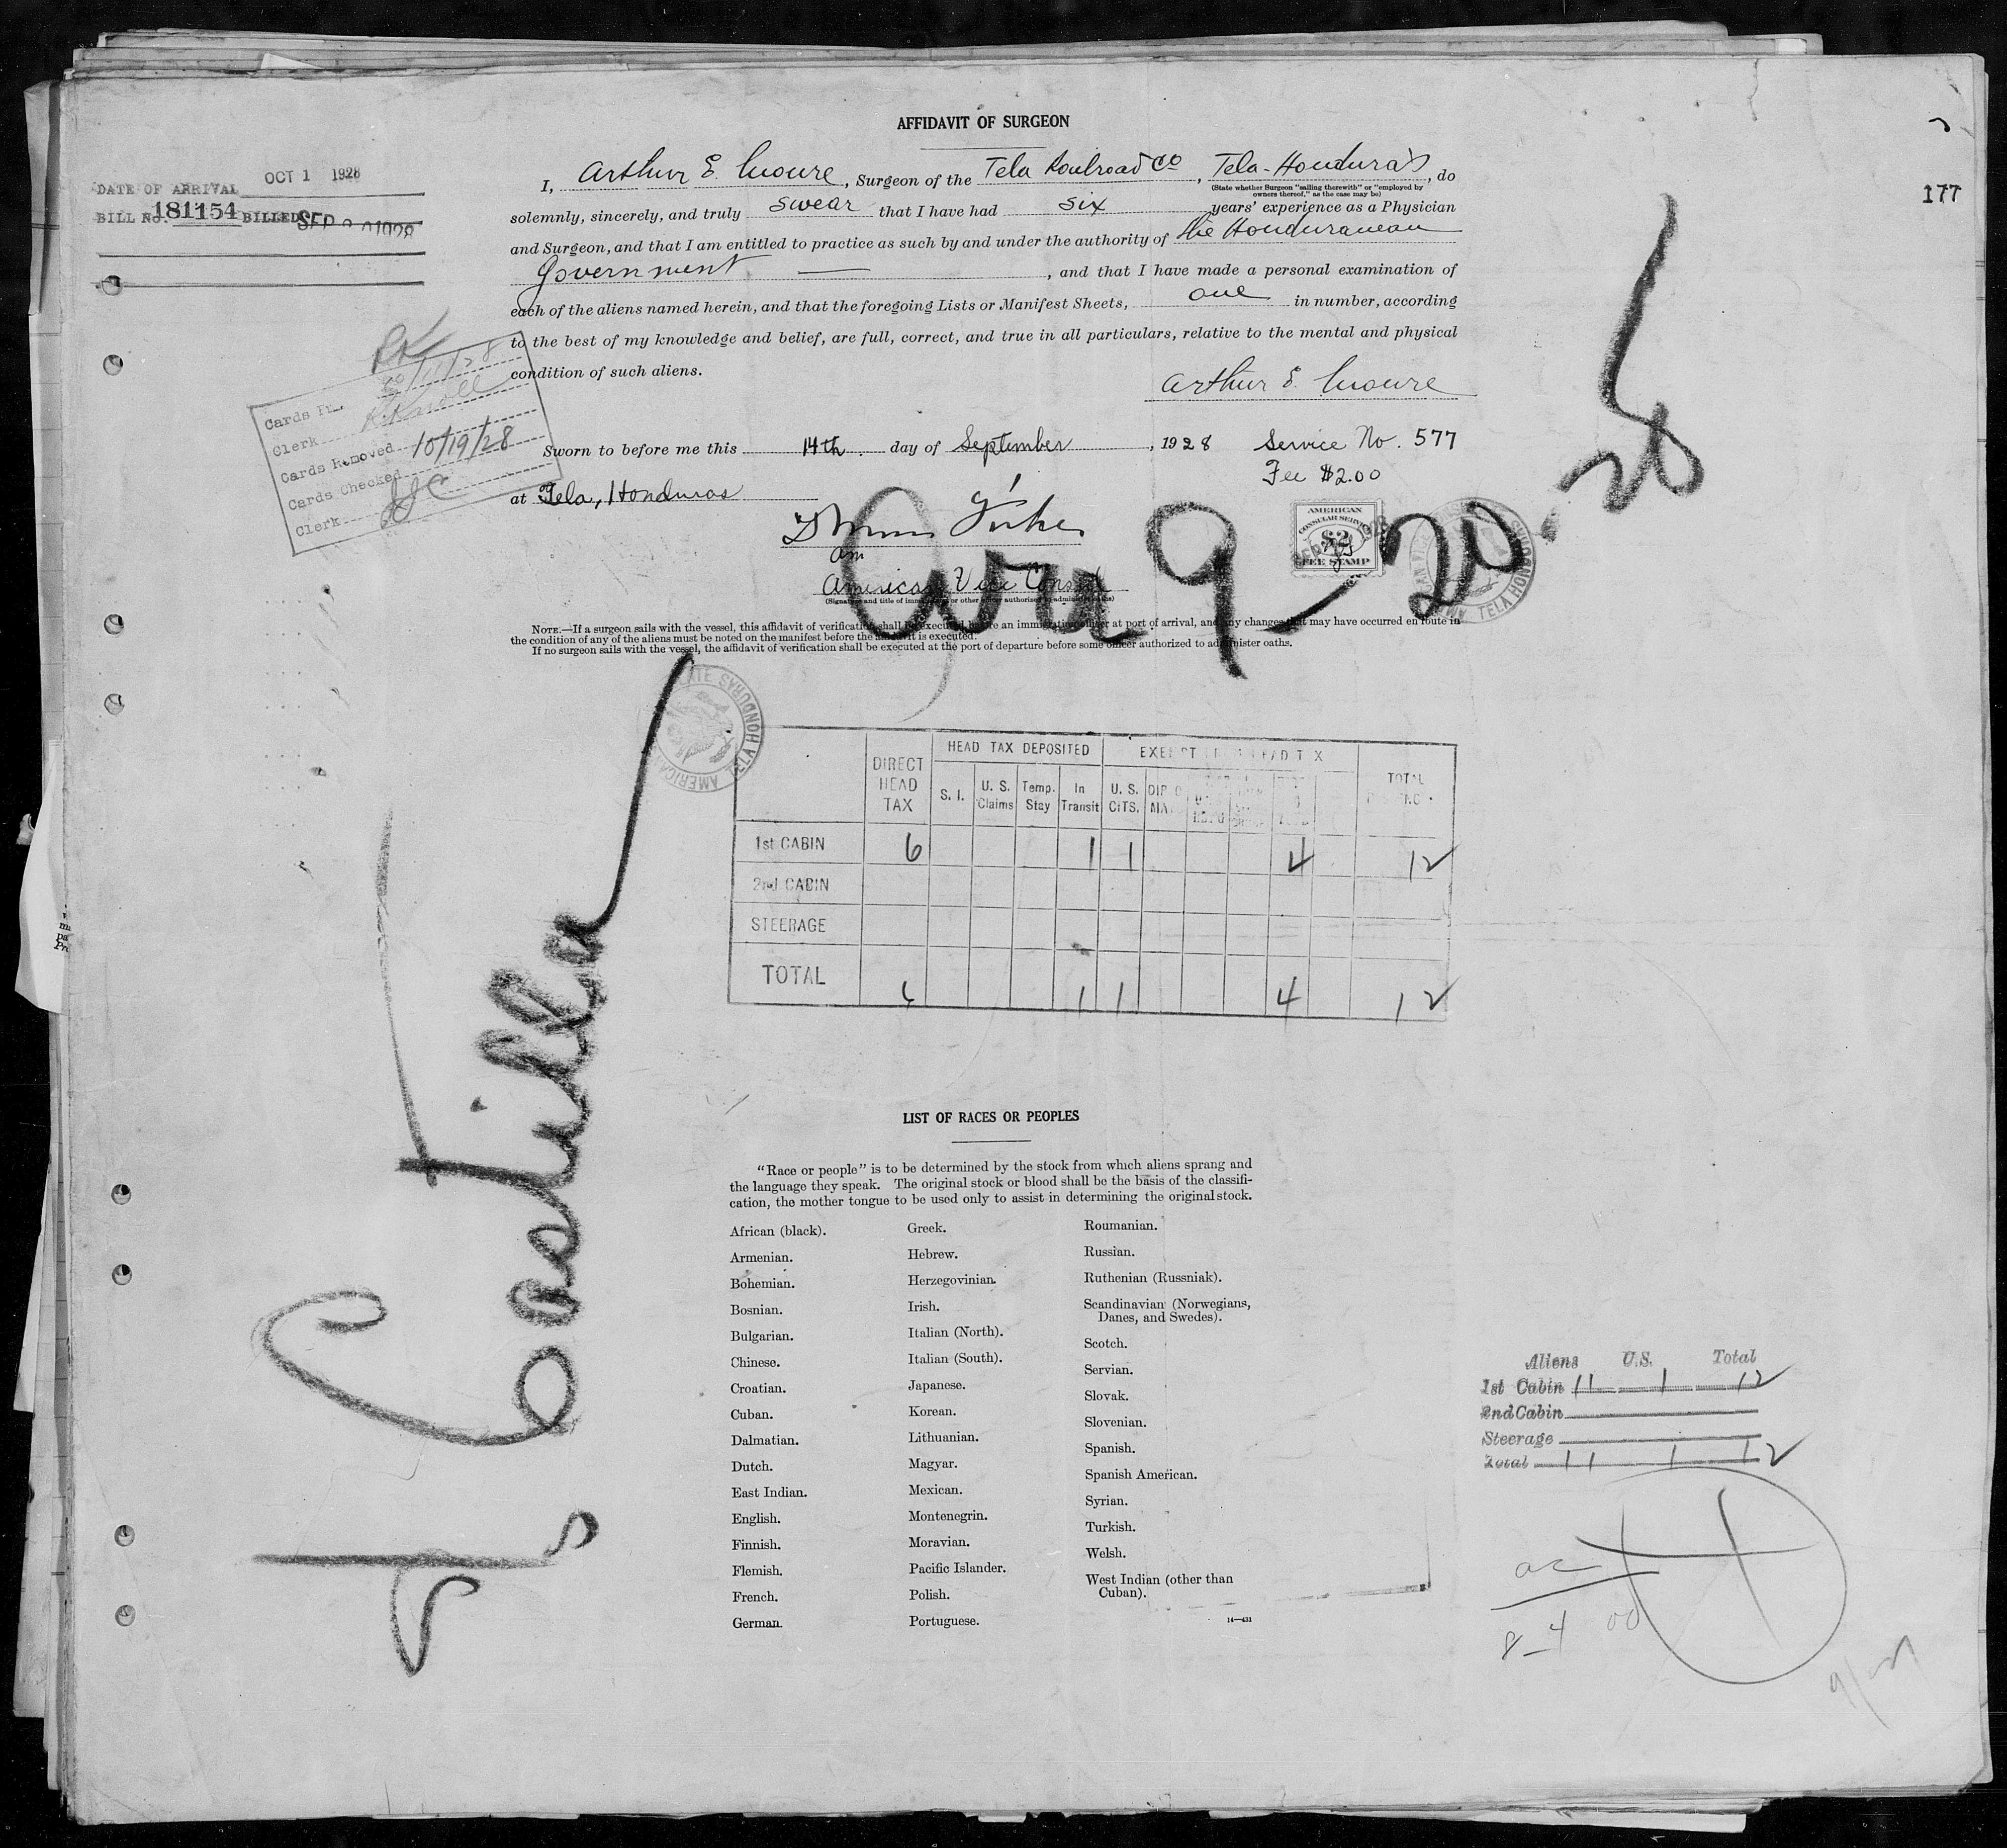 AFFIDAVIT OF SURGEON
177
DATE OF ARRIVAL OCT 1 1928
BILL No. 181154 BILLED SEP 1928
I, Arthur E. Moure, Surgeon of the Tela Railroad Co, Tela-Honduras, do
(State whether Surgeon "sailing therewith" or "employed by
owners thereof," as the case may be)
solemnly, sincerely, and truly swear that I have had six years' experience as a Physician
and Surgeon, and that I am entitled to practice as such by and under the authority of the Honduranean
Government —, and that I have made a personal examination of
each of the aliens named herein, and that the foregoing Lists or Manifest Sheets, one in number, according
to the best of my knowledge and belief, are full, correct, and true in all particulars, relative to the mental and physical
condition of such aliens.
Arthur E. Moure
Cards
Clerk
Cards Removed 10/19/28
Cards Checked
Clerk
Sworn to before me this 14th day of September, 1928 Service No. 577
Fee $2.00
at Tela, Honduras
AMERICAN
CONSULAR SERVICE
$2
FEE STAMP
American Vice Consul
(Signature and title of immigration or other officer authorized to administer oaths)
TELA HONDURAS
Arr 9-20-28
NOTE.—If a surgeon sails with the vessel, this affidavit of verification shall be executed before an immigration officer at port of arrival, and any changes that may have occurred en route in
the condition of any of the aliens must be noted on the manifest before the affidavit is executed.
If no surgeon sails with the vessel, the affidavit of verification shall be executed at the port of departure before some officer authorized to administer oaths.
TELA HONDURAS
Castilla
DIRECT HEAD TAX
HEAD TAX DEPOSITED
EXEMPT FROM HEAD TAX
TOTAL
S. I. U. S. Claims Temp. Stay In Transit U. S. CITS.
1st CABIN 6 1 1 4 12
2nd CABIN
STEERAGE
TOTAL 6 1 1 4 12
LIST OF RACES OR PEOPLES
"Race or people" is to be determined by the stock from which aliens sprang and
the language they speak. The original stock or blood shall be the basis of the classifi-
cation, the mother tongue to be used only to assist in determining the original stock.
African (black).
Armenian.
Bohemian.
Bosnian.
Bulgarian.
Chinese.
Croatian.
Cuban.
Dalmatian.
Dutch.
East Indian.
English.
Finnish.
Flemish.
French.
German.
Greek.
Hebrew.
Herzegovinian.
Irish.
Italian (North).
Italian (South).
Japanese.
Korean.
Lithuanian.
Magyar.
Mexican.
Montenegrin.
Moravian.
Pacific Islander.
Polish.
Portuguese.
Roumanian.
Russian.
Ruthenian (Russniak).
Scandinavian (Norwegians,
Danes, and Swedes).
Scotch.
Servian.
Slovak.
Slovenian.
Spanish.
Spanish American.
Syrian.
Turkish.
Welsh.
West Indian (other than
Cuban).
14—431
Aliens U.S. Total
1st Cabin 11 1 12
2nd Cabin
Steerage
Total 11 1 12
8-4